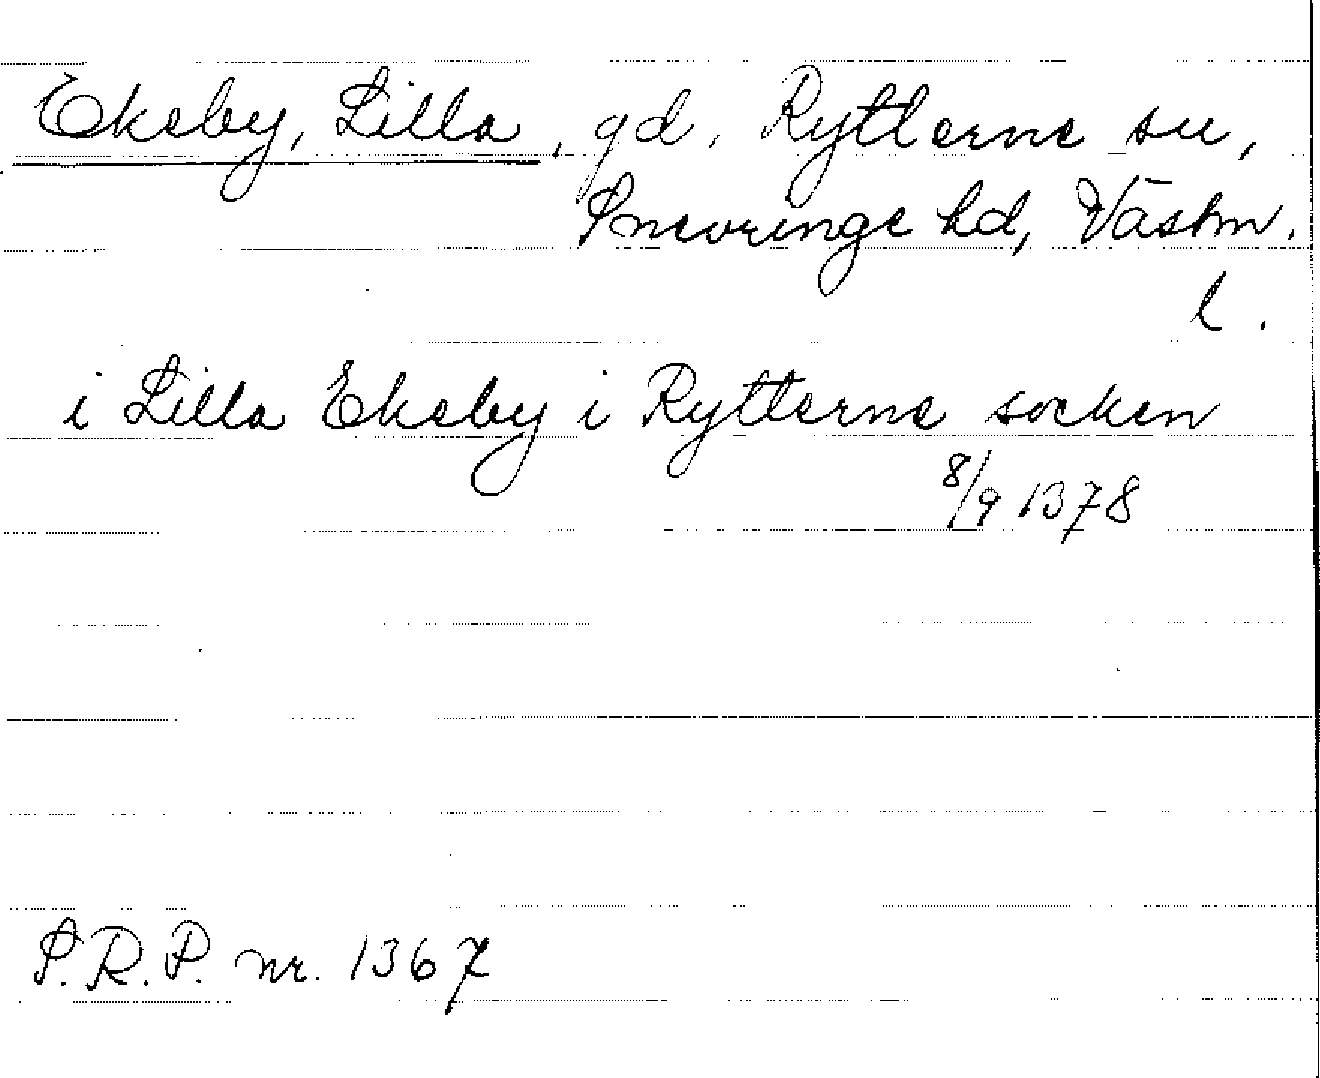 Ekeby, Lilla, gd, Rytterne sn,
Snevringe hd, Västm.
l.
i Lilla Ekeby i Rytterne socken
8/9 1378
S.R.P. nr. 1367